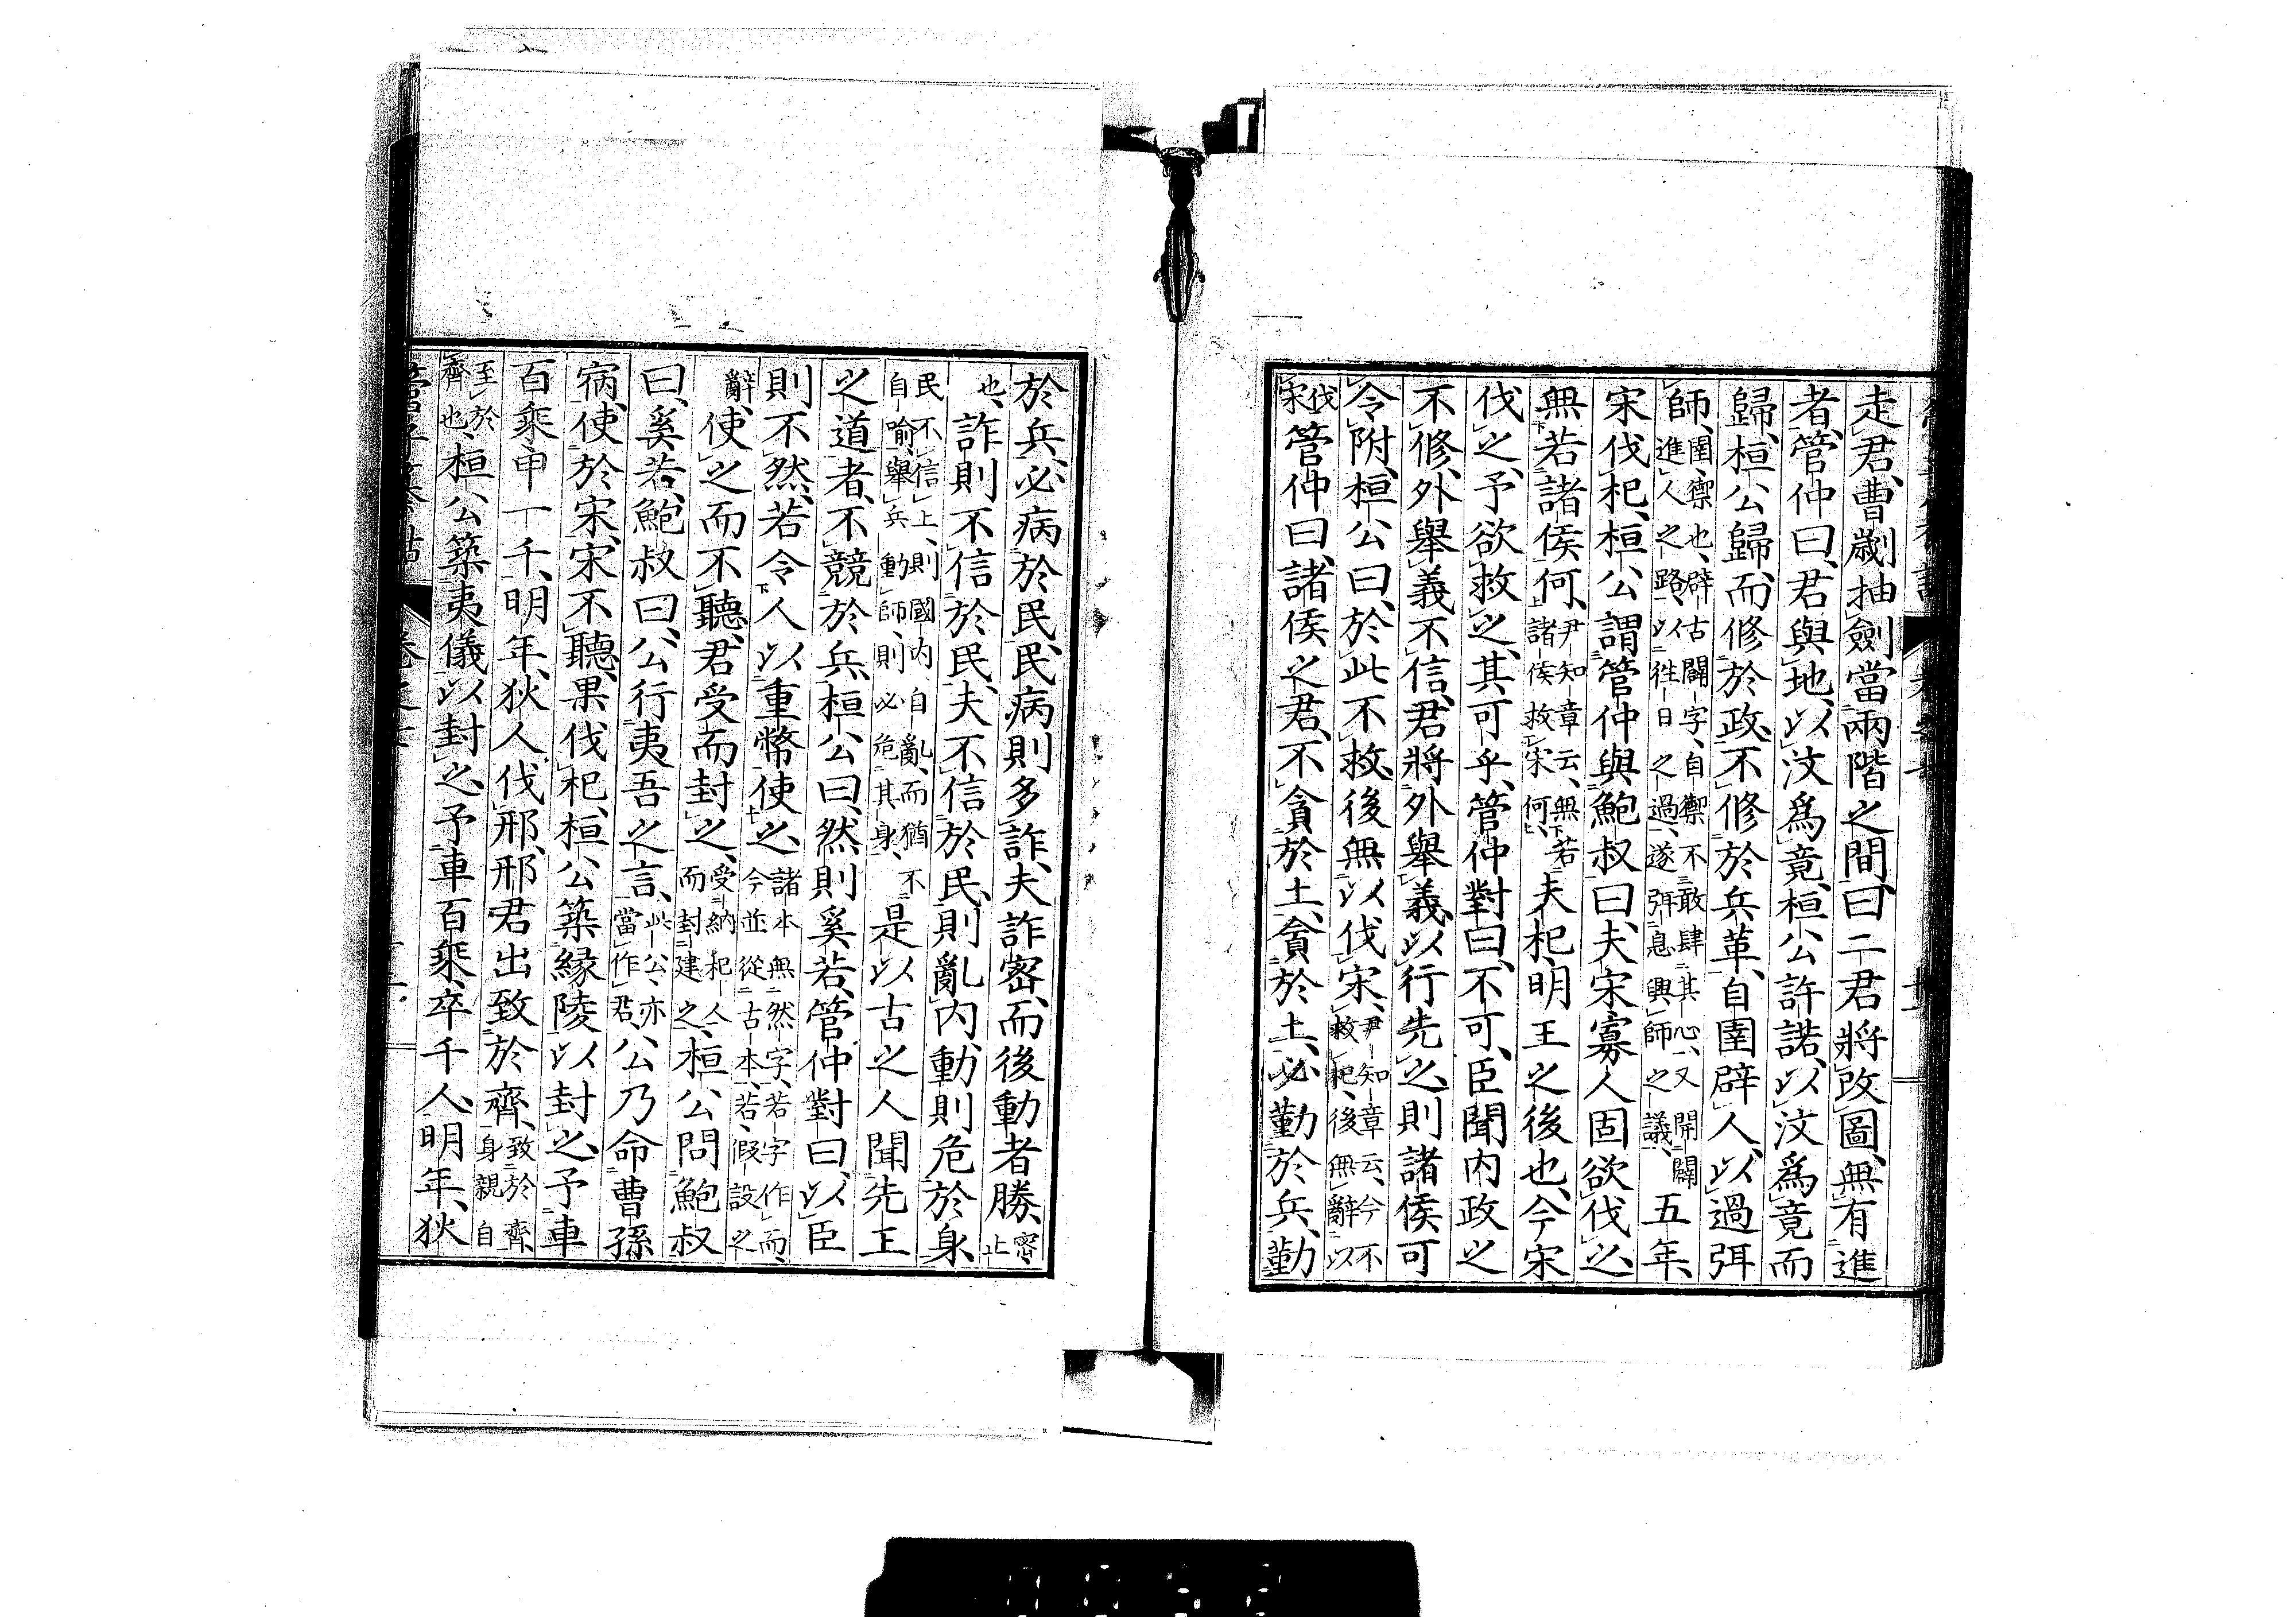 走君、曹劌抽劍當兩階之間、曰、二君將改圖、無有進
者、管仲曰、君與地、以汶爲竟、桓公許諾、以汶爲竟而
歸、桓公歸而修於政、不修於兵革、自圉辟人、以過弭
師、圉、禦也、辟古闢字、自禦不敢肆其心、又開闢進人之路、以往日之過、遂弭息興師之議、五年、
宋伐杞、桓公謂管仲與鮑叔曰、夫宋寡人固欲伐之、
無若諸侯何、尹知章云、無若諸侯救宋何、夫杞、明王之後也、今宋
伐之、予欲救之、其可乎、管仲對曰、不可、臣聞內政之
不修、外舉義不信、君將外舉義、以行先之、則諸侯可
令附、桓公曰、於此不救、後無以伐宋、尹知章云、今不救杞、後無辭以
伐宋管仲曰、諸侯之君、不貪於土、貪於土、必勤於兵、勤
於兵、必病於民、民病則多詐、夫詐密而後動者勝、密、止
也、詐則不信於民、夫不信於民、則亂內、動則危於身
民不信上、則國內自亂、而猶不自喻、舉兵動師、則必危其身、是以古之人聞先王
之道者、不競於兵、桓公曰、然則奚若、管仲對曰、以臣
則不然、若令人以重幣使之、諸本無然字、若字作而、今並從古本、若、假設之
辭、使之而不聽、君受而封之、受納杞人而封建之、桓公問鮑叔
曰、奚若、鮑叔曰、公行夷吾之言、此公、亦當作君、公乃命曹孫
宿使於宋、宋不聽、果伐杞、桓公築緣陵以封之、予車
百乘、甲一千、明年、狄人伐邢、邢君出致於齊、致於齊、身親自
至於齊也、桓公築夷儀以封之、予車百乘、卒千人、明年、狄